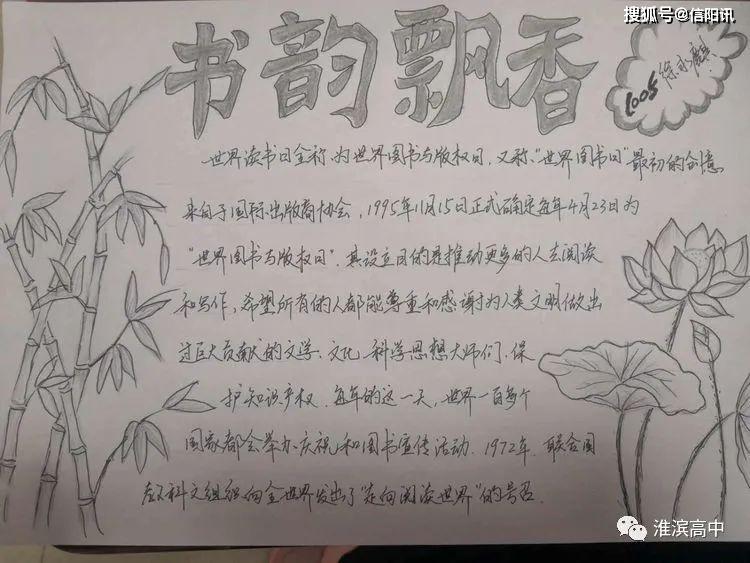 搜狐号@信阳讯
书韵飘香
1005
世界读书日全称为世界图书与版权日，又称"世界图书日"最初的创意
来自于国际出版商协会，1995年11月15日正式确定每年4月23日为
"世界图书与版权日"，其设立目的是推动更多的人去阅读
和写作，希望所有的人都能尊重和感谢为人类文明做出
过巨大贡献的文学、文化、科学思想大师们，保
护知识产权，每年的这一天，世界一百多个
国家都会举办庆祝和图书宣传活动，1972年，联合国
教科文组织向全世界发出了"走向阅读世界"的号召
淮滨高中